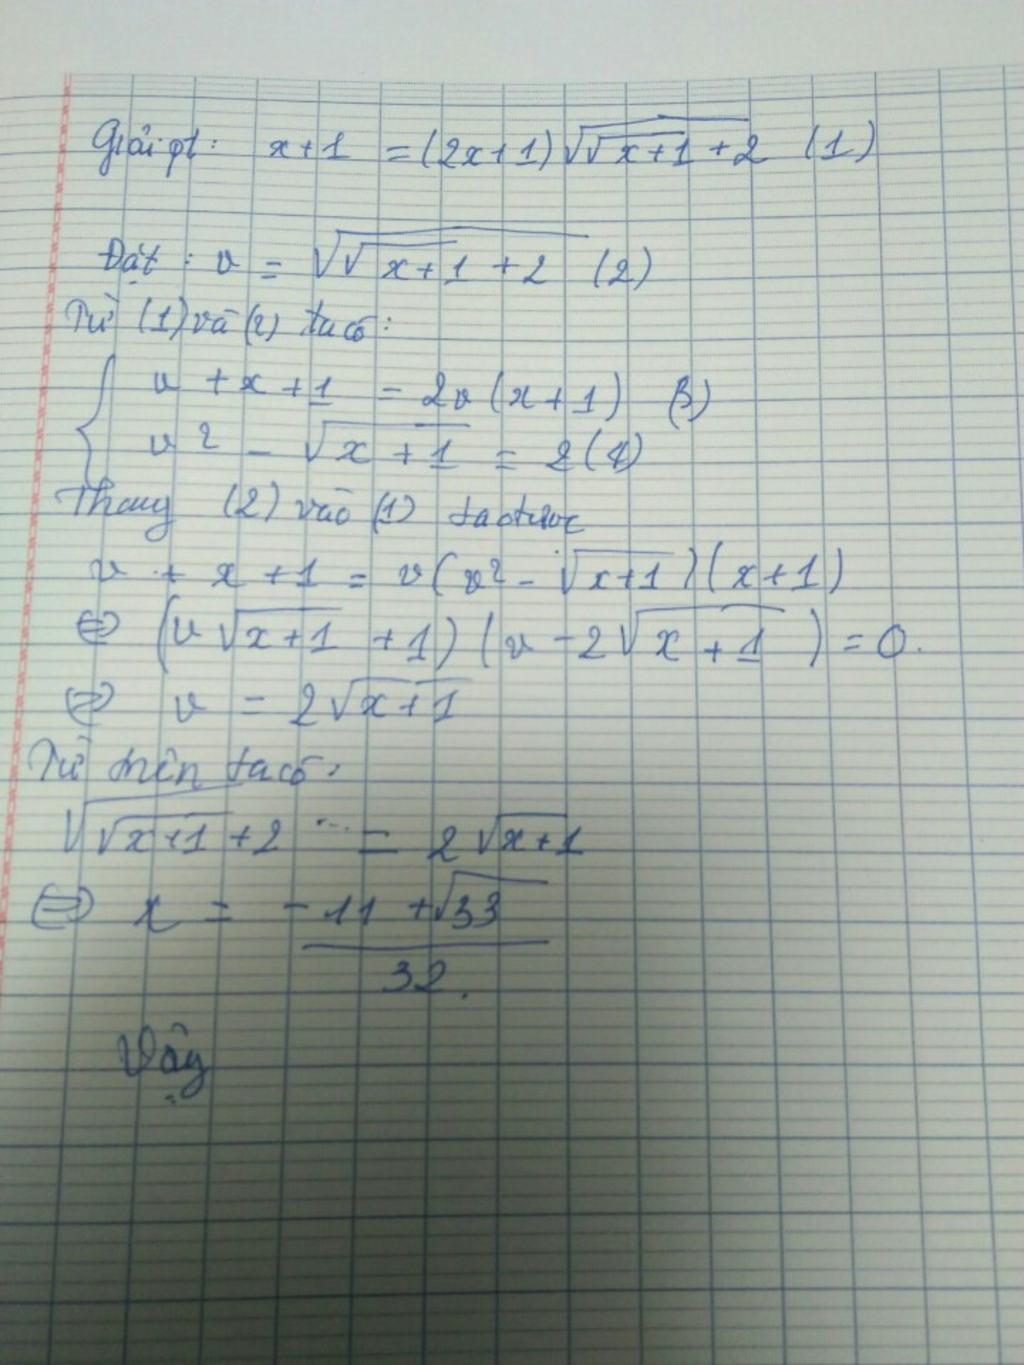 Giải pt: x+1 = (2x+1)√(√(x+1)+2) (1)
Đặt: v = √(√(x+1)+2) (2)
Từ (1) và (2) ta có:
{ v + x + 1 = 2v(x+1) (3)
v² - √(x+1) = 2 (4)
Thay (2) vào (1) ta được
v + x + 1 = v(v² - √(x+1))(x+1)
⇔ (v√(x+1) + 1)(v - 2√(x+1)) = 0.
⇔ v = 2√(x+1)
Từ trên ta có:
√(√(x+1)+2) = 2√(x+1)
⇔ x = (-11 + √33)/32.
Vậy